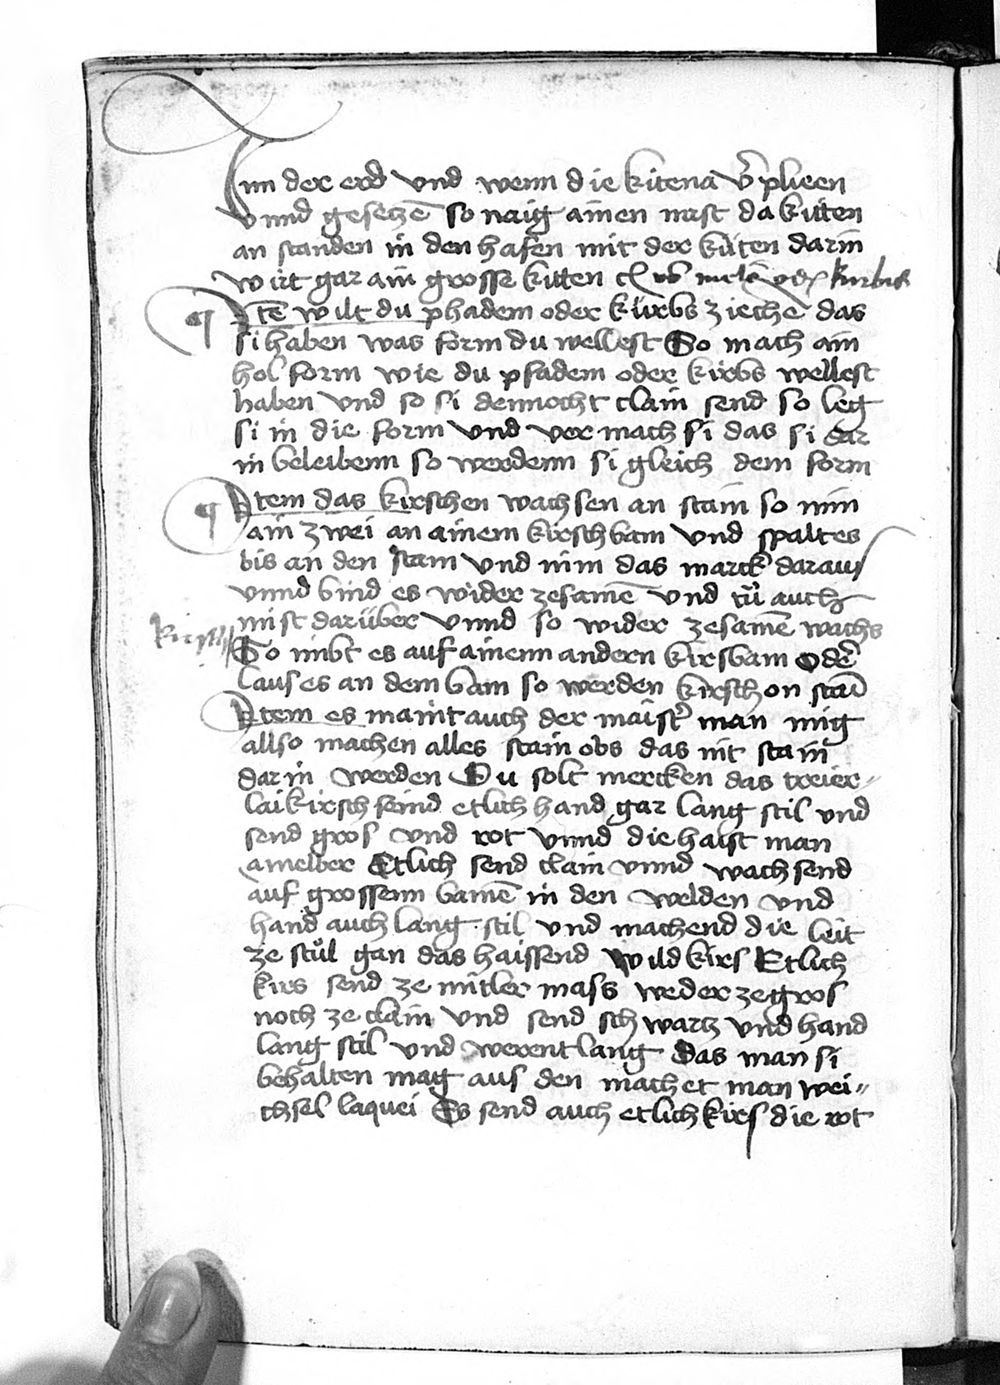 inn der erd vnd wenn die kitena v̄ plieen
vnnd gesetzē so naig ainen nast da kuten
an standen in den hafen mit der kuten darin
wirt gar ain grosse kutten
¶ Itē wilt du phadem oder kürbs ziechē das
si haben was form du wellest So mach ain
hol form wie du pfadem oder kirbs wellest
haben vnd so si dennocht clain send so leg
si in die form vnd ver mach si das si dar
in beleibenn so werdenn si gleich dem form
¶ Item das kirschen wachsen an stain so nim
ain zwei an ainem kirschbam vnd spalt es
bis an den stam vnd nim das marck daraus
vnnd bind es wider zesamē vnd tů auch
mist darüber vnnd so wider zesamē wachs
So imbt es auf ainenn andern kirsbam odē
laus es an dem bam so werden kirsch on stain
Item es maint auch der maistˀ man mig
allso machen alles stain obs das nit stain
dar in werden Du solt mercken das treier
lai kirsch seind etlich hand gar lang stil vnd
send gros vnd rot vnnd die haist man
amelber Etlich send clain vnnd wachsend
auf grossenn bamē in den welden vnd
hand auch lang stil vnd machend die leit
ze stůl gan das haissend wild kirs Etlich
kirs send ze mitler mass weder ze gros
noch ze clain vnd send schwartz vnd hand
lang stil vnd werent lang das man si
behalten mag aus den machet man wei
chsel laquei Es send auch etlich kirs die rot